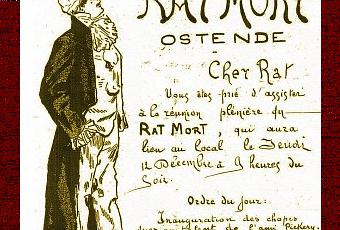 RAT MORT
OSTENDE
Cher Rat
Vous êtes prié d'assister
à la réunion plénière du
RAT MORT, qui aura
lieu au local le Jeudi
12 Décembre à 9 heures du
Soir.
Ordre du jour:
Inauguration des chopes
de l'ami Pickery.